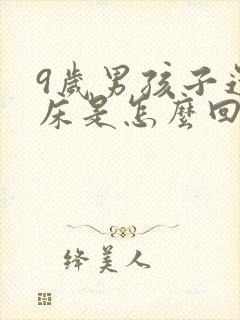 9歲男孩子還
床是怎麼回
绛美人